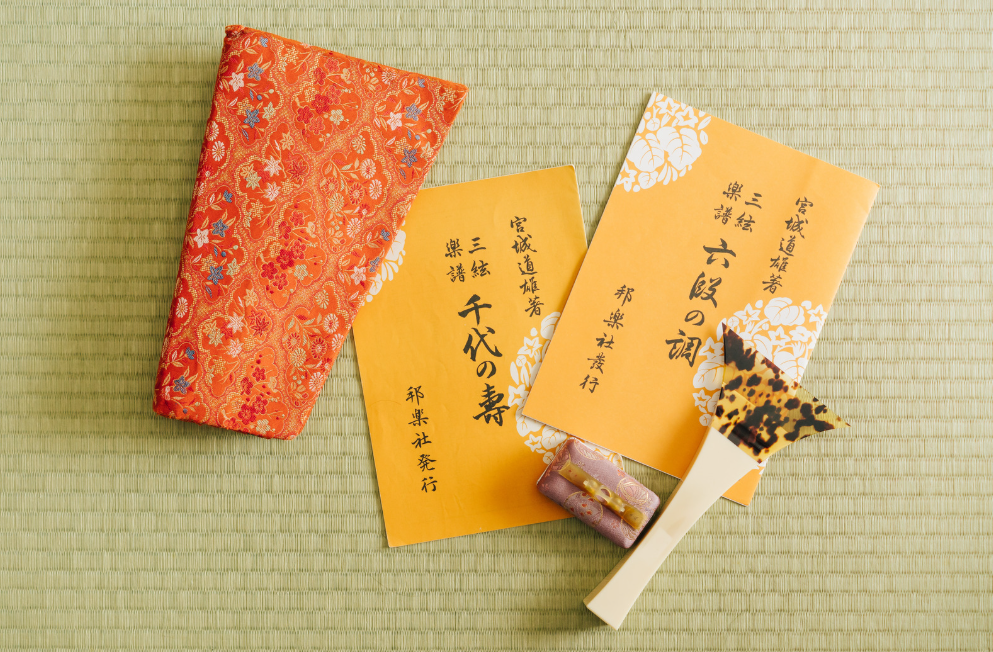 宮城道雄著
三絃
楽譜
千代の壽
邦楽社発行
宮城道雄著
三絃
楽譜
六段の調
邦楽社發行